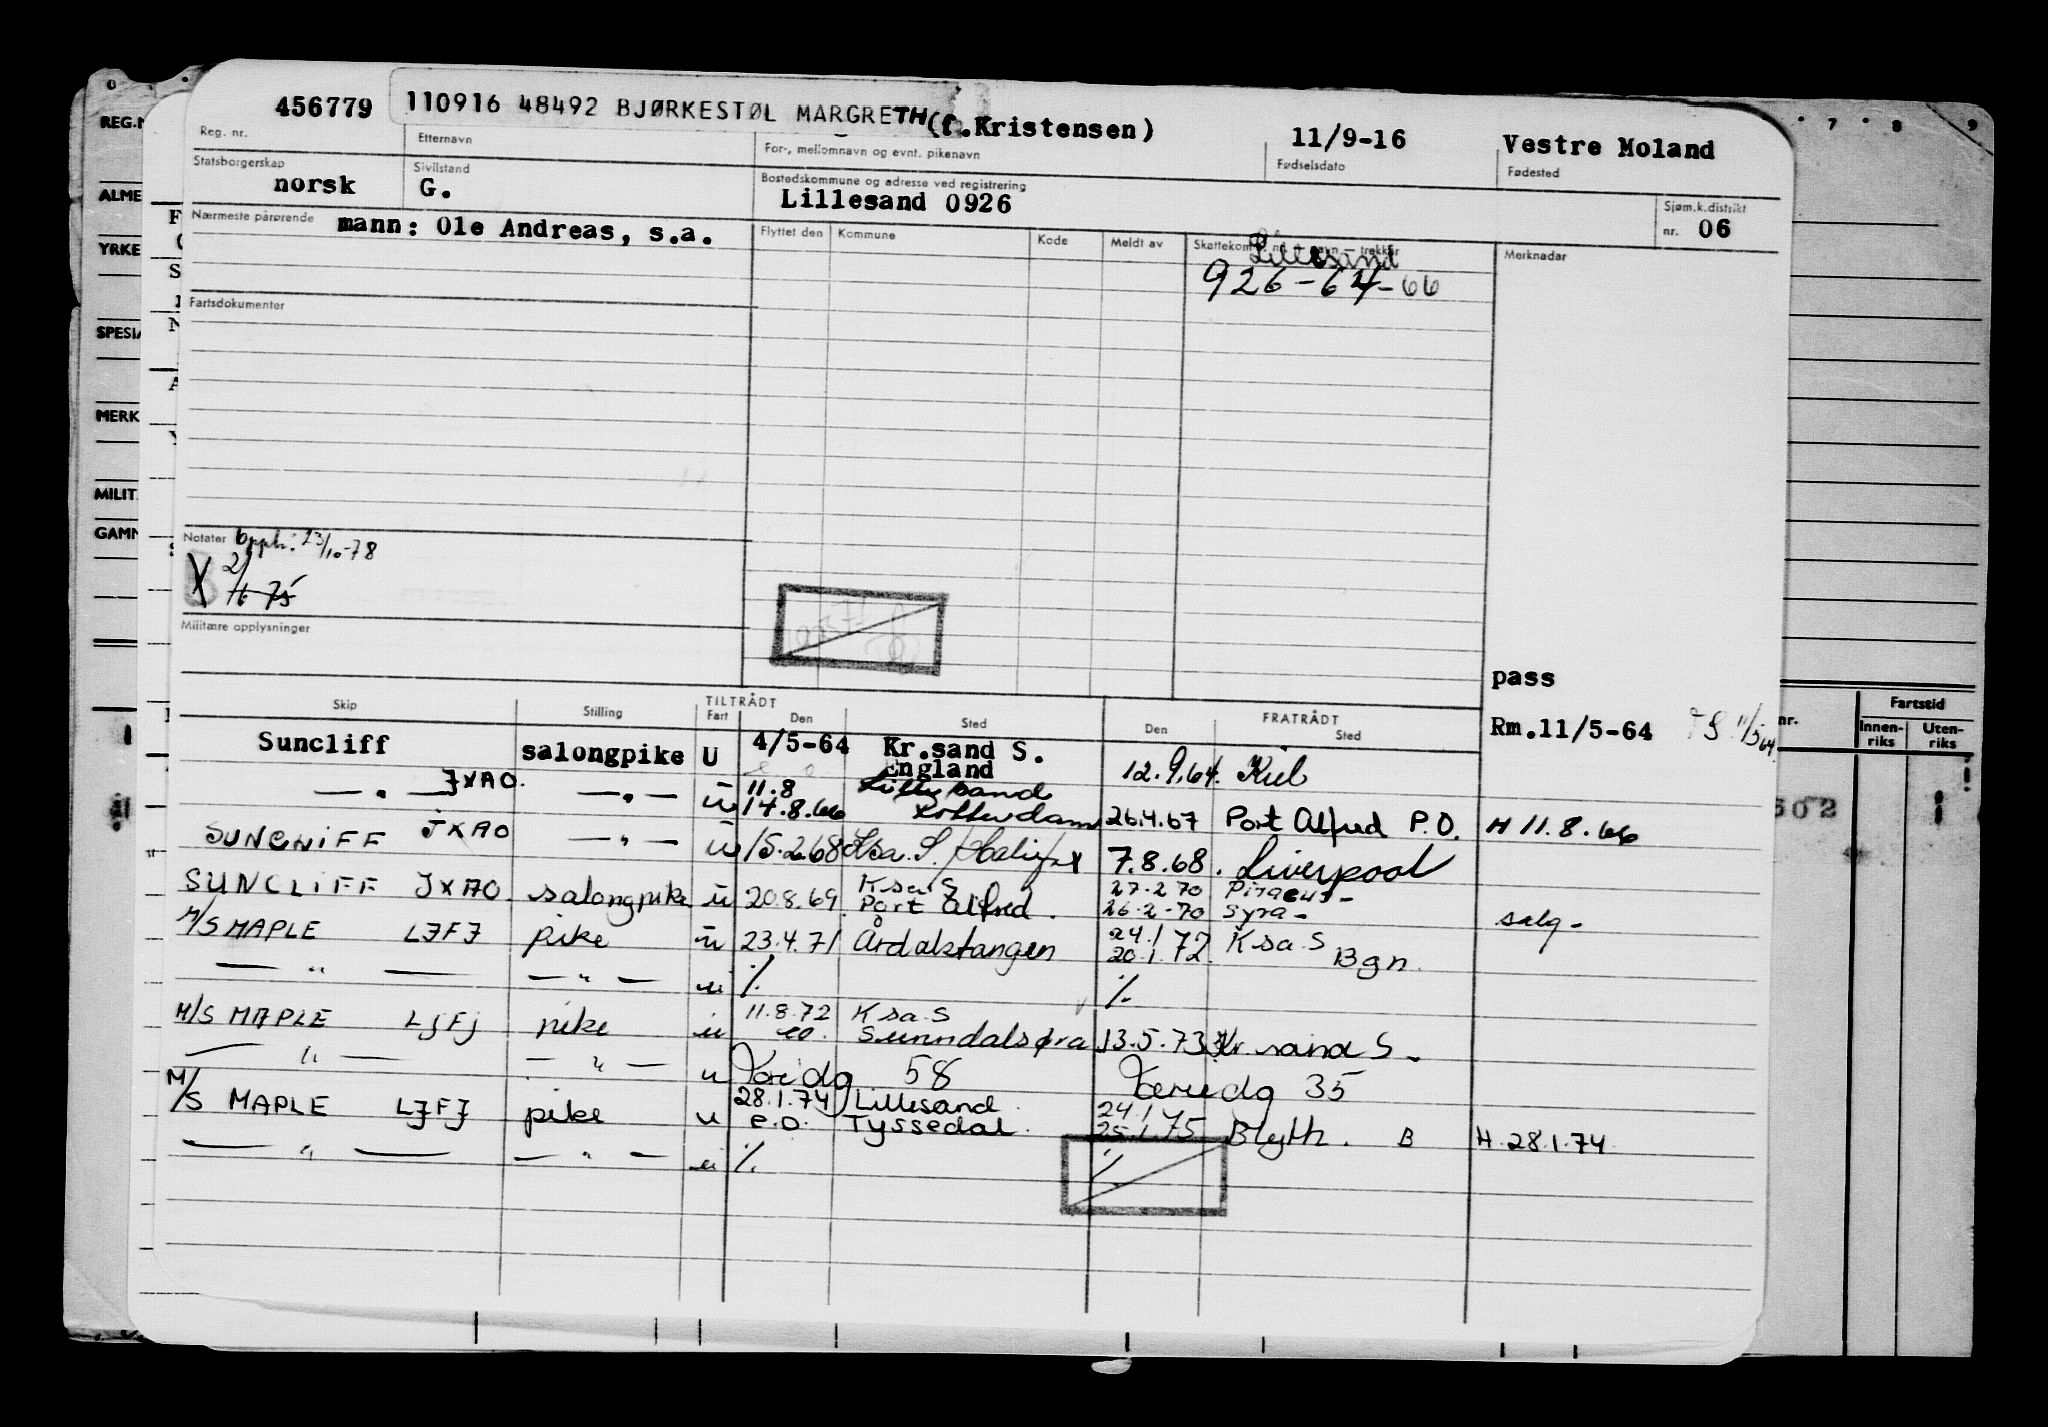 456779 110916 48492 BJØRKESTØL MARGRETH (f.Kristensen) 11/9-16 Vestre Moland
Reg. nr. Etternavn For-, mellomnavn og evnt. pikenavn Fødselsdato Fødested
Statsborgerskap Sivilstand Bostedskommune og adresse ved registrering Sjøm.k.distrikt
norsk G. Lillesand 0926 nr. 06
Nærmeste pårørende mann: Ole Andreas, s.a. Flyttet den Kommune Kode Meldt av Merknader
Lillesand
926-64-66
Fartsdokumenter
Notater Opph: 23/10-78
X
Militære opplysninger
pass
Skip Stilling TILTRÅDT FRATRÅDT
Fart Den Sted Den Sted Rm.11/5-64
Suncliff salongpike U 4/5-64 Kr.sand S.
England 12.9.64. Kiel
— " — JXAO. — " — u 11.8 Lillesand
14.8.66 Rotterdam 26.4.67 Port Alfred P.O. H 11.8.66
SUNCLIFF JXAO — " — u 15.2.68 Ksa. S. / Halifax 7.8.68. Liverpool
SUNCLIFF JXAO. salongpike u 20.8.69. Ksa S 27.2 70 Piraeus -
Port Alfred. 26-2-70 Syra - salg -
M/S MAPLE LJFJ pike u 23.4.71 Årdalstangen 24.1 72. Ksa. S
20.1. Bgn.
— " — — " — u ⁒ ⁒
M/S MAPLE LJFJ pike u 11.8.72 Ksa. S
eo. Sunndalsøra 13.5.73 Kr. sand S.
— " — — " — u 58 35
M/S MAPLE LJFJ pike u 28.1.74 Lillesand 24.1
e.o. Tyssedal. 25.1.75 Blyth. B H. 28.1.74
— " — — " — u ⁒ ⁒
REG.N
ALME
YRKE
SPESIA
MERK
MILIT.
GAMN
7 8 9
nr. Fartstid
Innen-riks Uten-riks
502